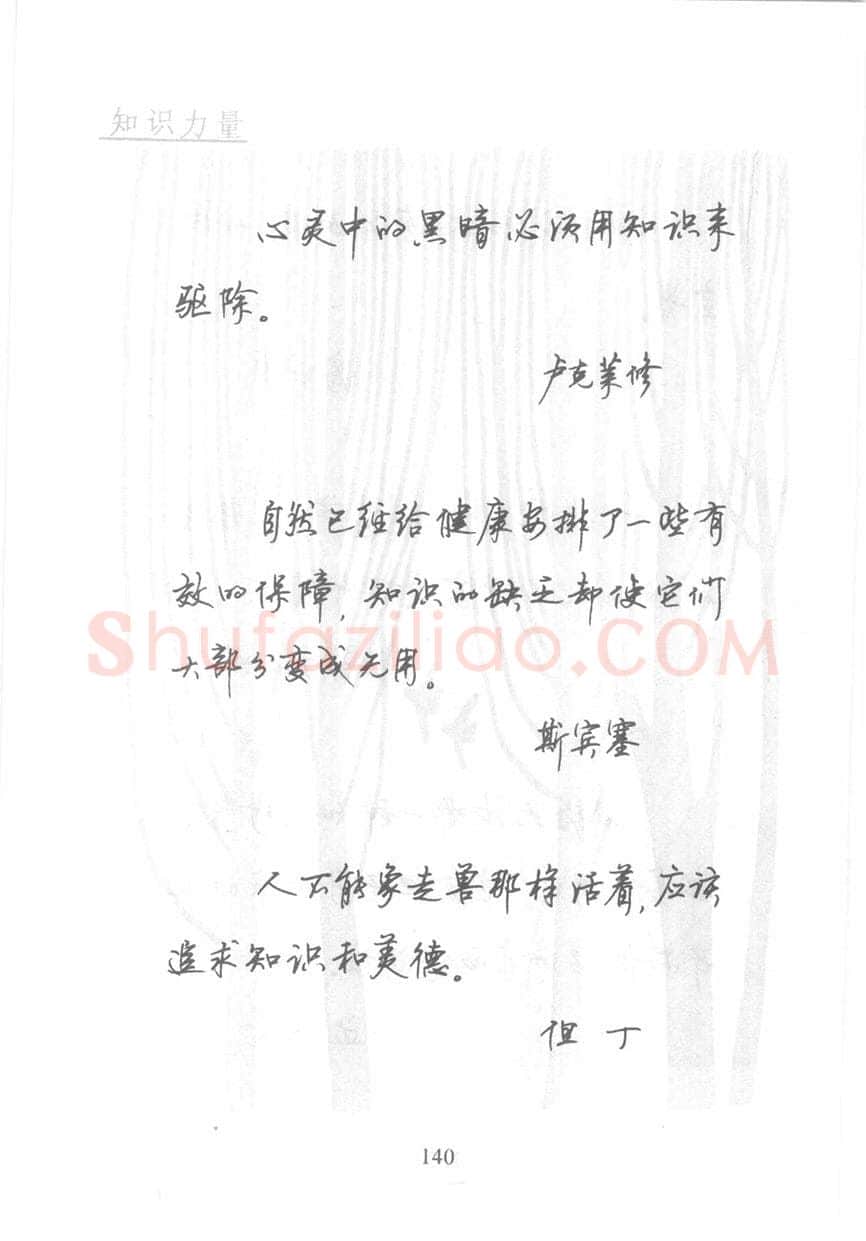 知识力量
心灵中的黑暗必须用知识来
驱除。
卢克莱修
自然已经给健康安排了一些有
效的保障,知识的缺乏却使它们
大部分变成无用。
斯宾塞
人不能象走兽那样活着,应该
追求知识和美德。
但丁
140
Shufaziliao.COM